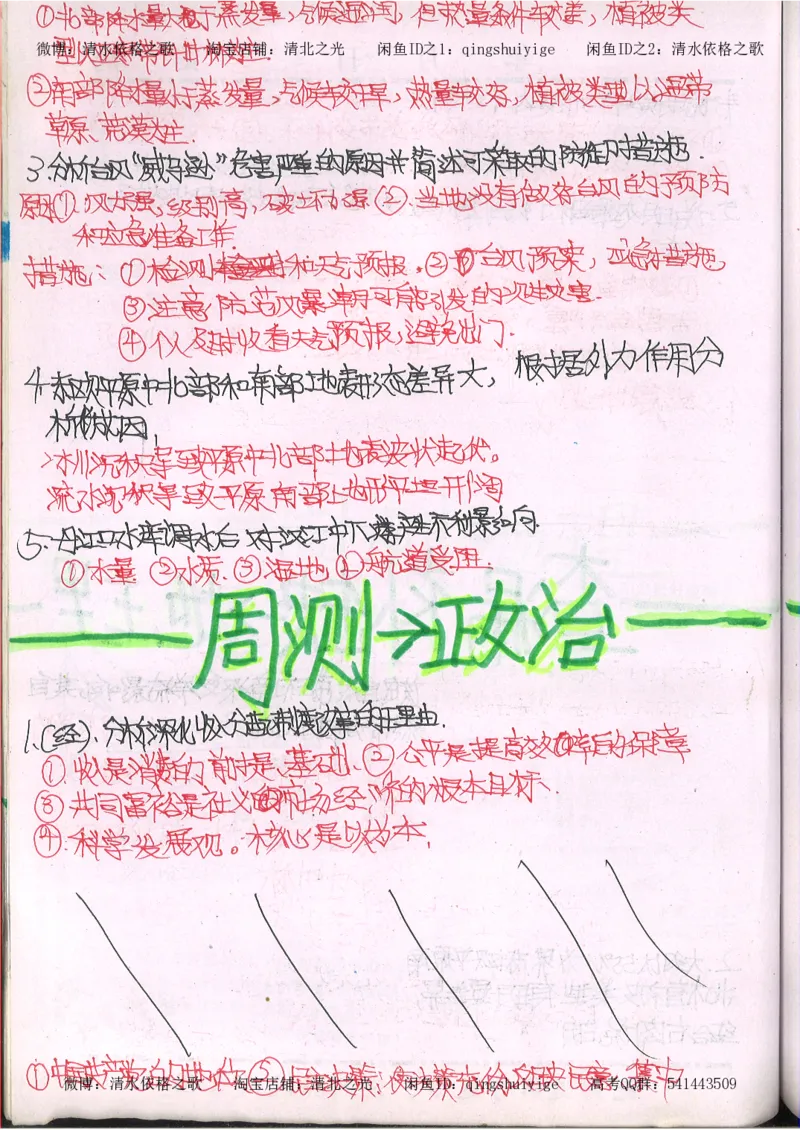 ①北部降水量大于蒸发量，气候湿润，但热量条件较差，植被类
微博：清水依格之歌 淘宝店铺：清北之光 闲鱼ID之1：qingshuiyige 闲鱼ID之2：清水依格之歌
型以亚寒带针叶林为主.
②南部降水量小于蒸发量，气候较干旱，热量较好，植被类型以温带
草原、荒漠为主.
3.分析台风“威马逊”危害严重的原因并简述可采取的防御对措施.
原因①.风力强，级别高，破坏力强②.当地没有做好台风的预防
和应急准备工作.
措施：①检测和天气预报.②台风预案，应急措施，
③注意防范风暴潮可能引发的次生灾害.
④个人及时收看天气预报，避免出门.
4.东欧平原中北部和南部地表形态差异大，根据外力作用分
析成因，
冰川沉积导致平原中北部地表波状起伏。
流水沉积导致平原南部地形平坦开阔
5.丹江口水库调水后对汉江中下游产生不利影响.
①水量 ②水质.③湿地④航道受阻.
周测→政治
1.(经).分析深化收入分配制度改革的理由.
①.收入是消费的前提、基础、②公平是提高效率的保障
③共同富裕是社义的市场经济的根本目标、
④.科学发展观。核心是以人为本，
微博：清水依格之歌 淘宝店铺：清北之光 闲鱼ID：qingshuiyige 高考QQ群：541443509